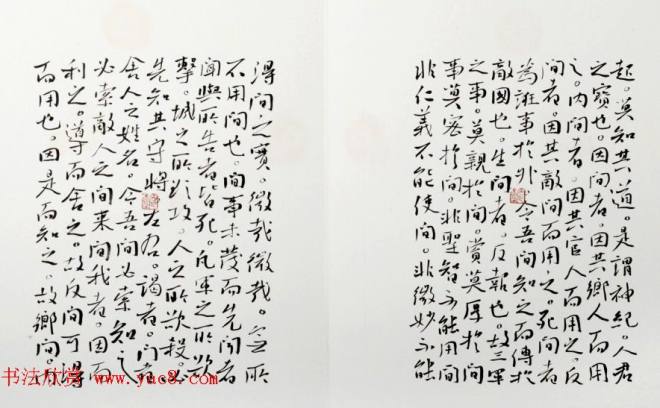 起。莫知其道。是謂神紀。人君
之寶也。因間者。因其鄉人而用
之。内間者。因其官人而用之。反
間者。因其敵間而用之。死間者
為誑事於外。令吾間知之而傳於
敵國也。生間者。反報也。故三軍
之事。莫親於間。賞莫厚於間
事莫密於間。非聖智不能用間
非仁義不能使間。非微妙不能
得間之實。微哉微哉。无所
不用間也。間事未發而先聞者
聞與所告者皆死。凡軍之所欲
擊。城之所欲攻。人之所欲殺。必
先知其守將左右。謁者。門者
舍人之姓名。令吾間必索知之
必索敵人之間来間我者。因而
利之。導而舍之。故反間可得
而用也。因是而知之。故鄉間。内
书法欣赏 www.yac8.com